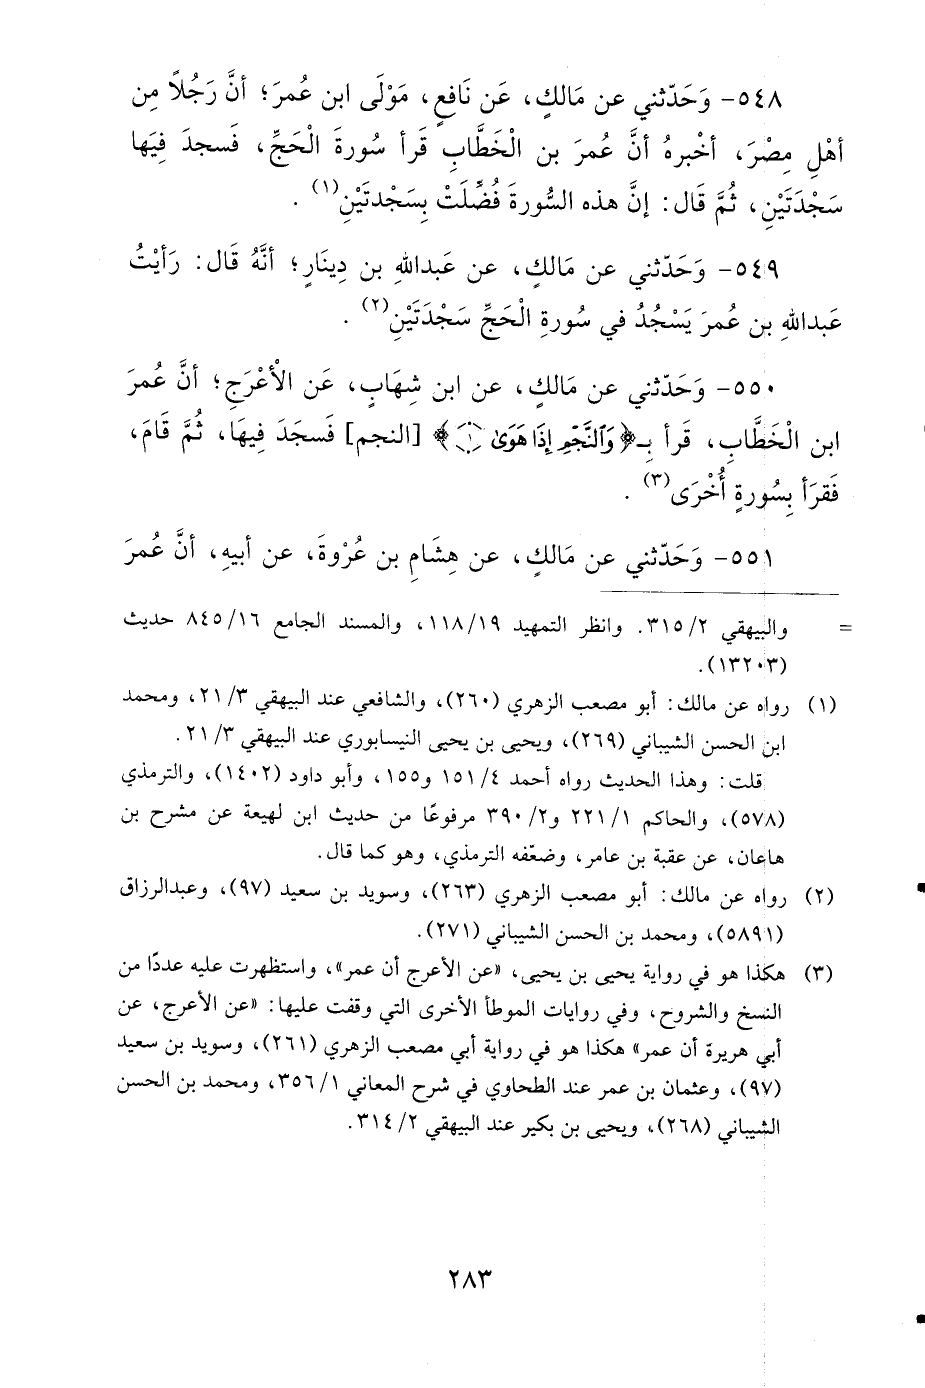 ٥٤٨- وَحَدّثني عن مَالكٍ، عَن نَافعٍ، مَوْلَى ابن عُمرَ؛ أنَّ رَجُلاً مِن
أهْلِ مِصْرَ، أخْبرهُ أنَّ عُمرَ بن الْخَطَّابِ قَرأ سُورةَ الْحَجِّ، فَسجدَ فِيَها
سَجْدَتَيْنِ، ثُمَّ قَال: إنَّ هذه السُّورةَ فُضِّلَتْ بِسَجْدتَيْنِ(١) .
٥٤٩- وَحَدّثني عن مَالكٍ، عن عَبدالله بن دِينَارٍ؛ أنَّهُ قَال: رَأيْتُ
عَبدالله بن عُمرَ يَسْجُدُ في سُورةِ الْحَجِّ سَجْدَتَيْنِ(٢) .
٥٥٠- وَحَدّثني عن مَالكٍ، عن ابن شِهَابٍ، عَن الأعْرَجِ؛ أنَّ عُمرَ
ابن الْخَطَّابِ، قَرأ بِـ﴿وَٱلنَّجْمِ إِذَا هَوَىٰ ۝١﴾ [النجم] فَسجَدَ فِيهَا، ثُمَّ قَامَ،
فَقرَأ بِسُورةٍ أُخْرَى(٣) .
٥٥١- وَحَدّثني عن مَالكٍ، عن هِشَامِ بن عُرْوةَ، عن أبيهِ، أنَّ عُمرَ
= والبيهقي ٢/ ٣١٥. وانظر التمهيد ١٩/ ١١٨، والمسند الجامع ١٦/ ٨٤٥ حديث
(١٣٢٠٣).
(١) رواه عن مالك: أبو مصعب الزهري (٢٦٠)، والشافعي عند البيهقي ٣/ ٢١، ومحمد
ابن الحسن الشيباني (٢٦٩)، ويحيى بن يحيى النيسابوري عند البيهقي ٣/ ٢١.
قلت: وهذا الحديث رواه أحمد ٤/ ١٥١ و١٥٥، وأبو داود (١٤٠٢)، والترمذي
(٥٧٨)، والحاكم ١/ ٢٢١ و٢/ ٣٩٠ مرفوعًا من حديث ابن لهيعة عن مشرح بن
هاعان، عن عقبة بن عامر، وضعّفه الترمذي، وهو كما قال.
(٢) رواه عن مالك: أبو مصعب الزهري (٢٦٣)، وسويد بن سعيد (٩٧)، وعبدالرزاق
(٥٨٩١)، ومحمد بن الحسن الشيباني (٢٧١).
(٣) هكذا هو في رواية يحيى بن يحيى، «عن الأعرج أن عمر»، واستظهرت عليه عددًا من
النسخ والشروح، وفي روايات الموطأ الأخرى التي وقفت عليها: «عن الأعرج، عن
أبي هريرة أن عمر» هكذا هو في رواية أبي مصعب الزهري (٢٦١)، وسويد بن سعيد
(٩٧)، وعثمان بن عمر عند الطحاوي في شرح المعاني ١/ ٣٥٦، ومحمد بن الحسن
الشيباني (٢٦٨)، ويحيى بن بكير عند البيهقي ٢/ ٣١٤.
٢٨٣